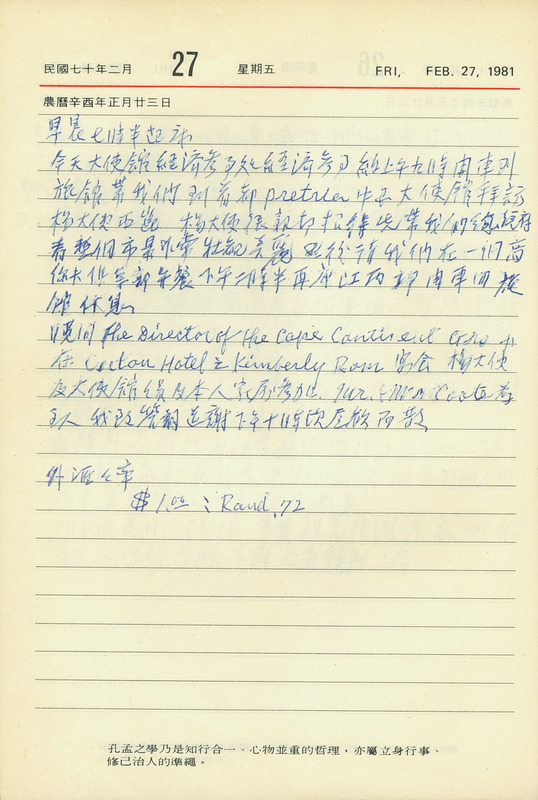 民國七十年二月 27 星期五 FRI, FEB. 27, 1981
農曆辛酉年正月廿三日
早晨七時半起床
今天大使館經濟參事處經濟參事 上午九時開車到
旅館帶我們到首都 pretrier 中華大使館拜訪
楊大使西崑 楊大使很親切招待先帶我們 總統府
看整個市景非常壯觀美麗 招待我們在一間高
午餐下午二時半再 江西 開車回旅
館休息
晚間 The Director of the Cape Continent
在 Carton Hotel 之 Kimberly Rom 宴會 楊大使
及大使館 及本人 參加 Mr. Coate 為
主人 我致答詞道謝下午十時 盡歡而散
外匯匯率
$1.00 : Rand .72
孔孟之學乃是知行合一、心物並重的哲理,亦屬立身行事、
修己治人的準繩。